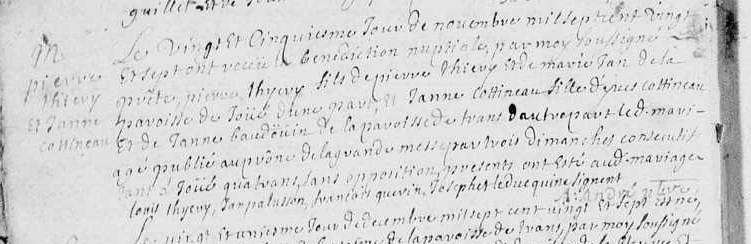 M
pierre
thiery
Et Janne
cottineau
Le vingt Et Cinquiesme Jour de novembre mil sept cent vingt
Et sept ont receu la benediction nuptiale, par moy soussigné
prêtre, pierre thyery fils de pierre thiery Et de marie Jan de la
paroisse de Joüé d'une part, Et Janne cottineau fille d'yves cottineau
Et de Janne baudoüin de la paroisse de trans d'autre part led. mari-
age publié au prône de la grande messe par trois dimanches consecutifs
tant à Joüé qu'a trans, sans opposition, presents ont Esté aud. mariage
Louis thyery, Jan palusson, françois guerin, Joseph leduc qui ne signent
Le vingt Et uniesme Jour de decembre mil sept cent vingt Et sept Est né,
de la paroisse de trans, par moy soussigné